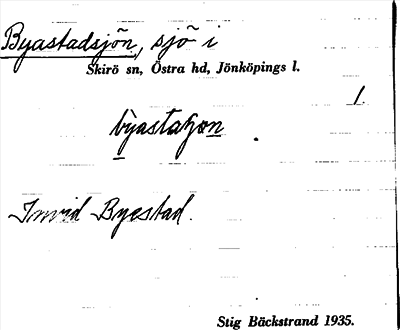 Byastadsjön, sjö i
Skirö sn, Östra hd, Jönköpings l.
1.
Invid Byestad.
Stig Bäckstrand 1935.